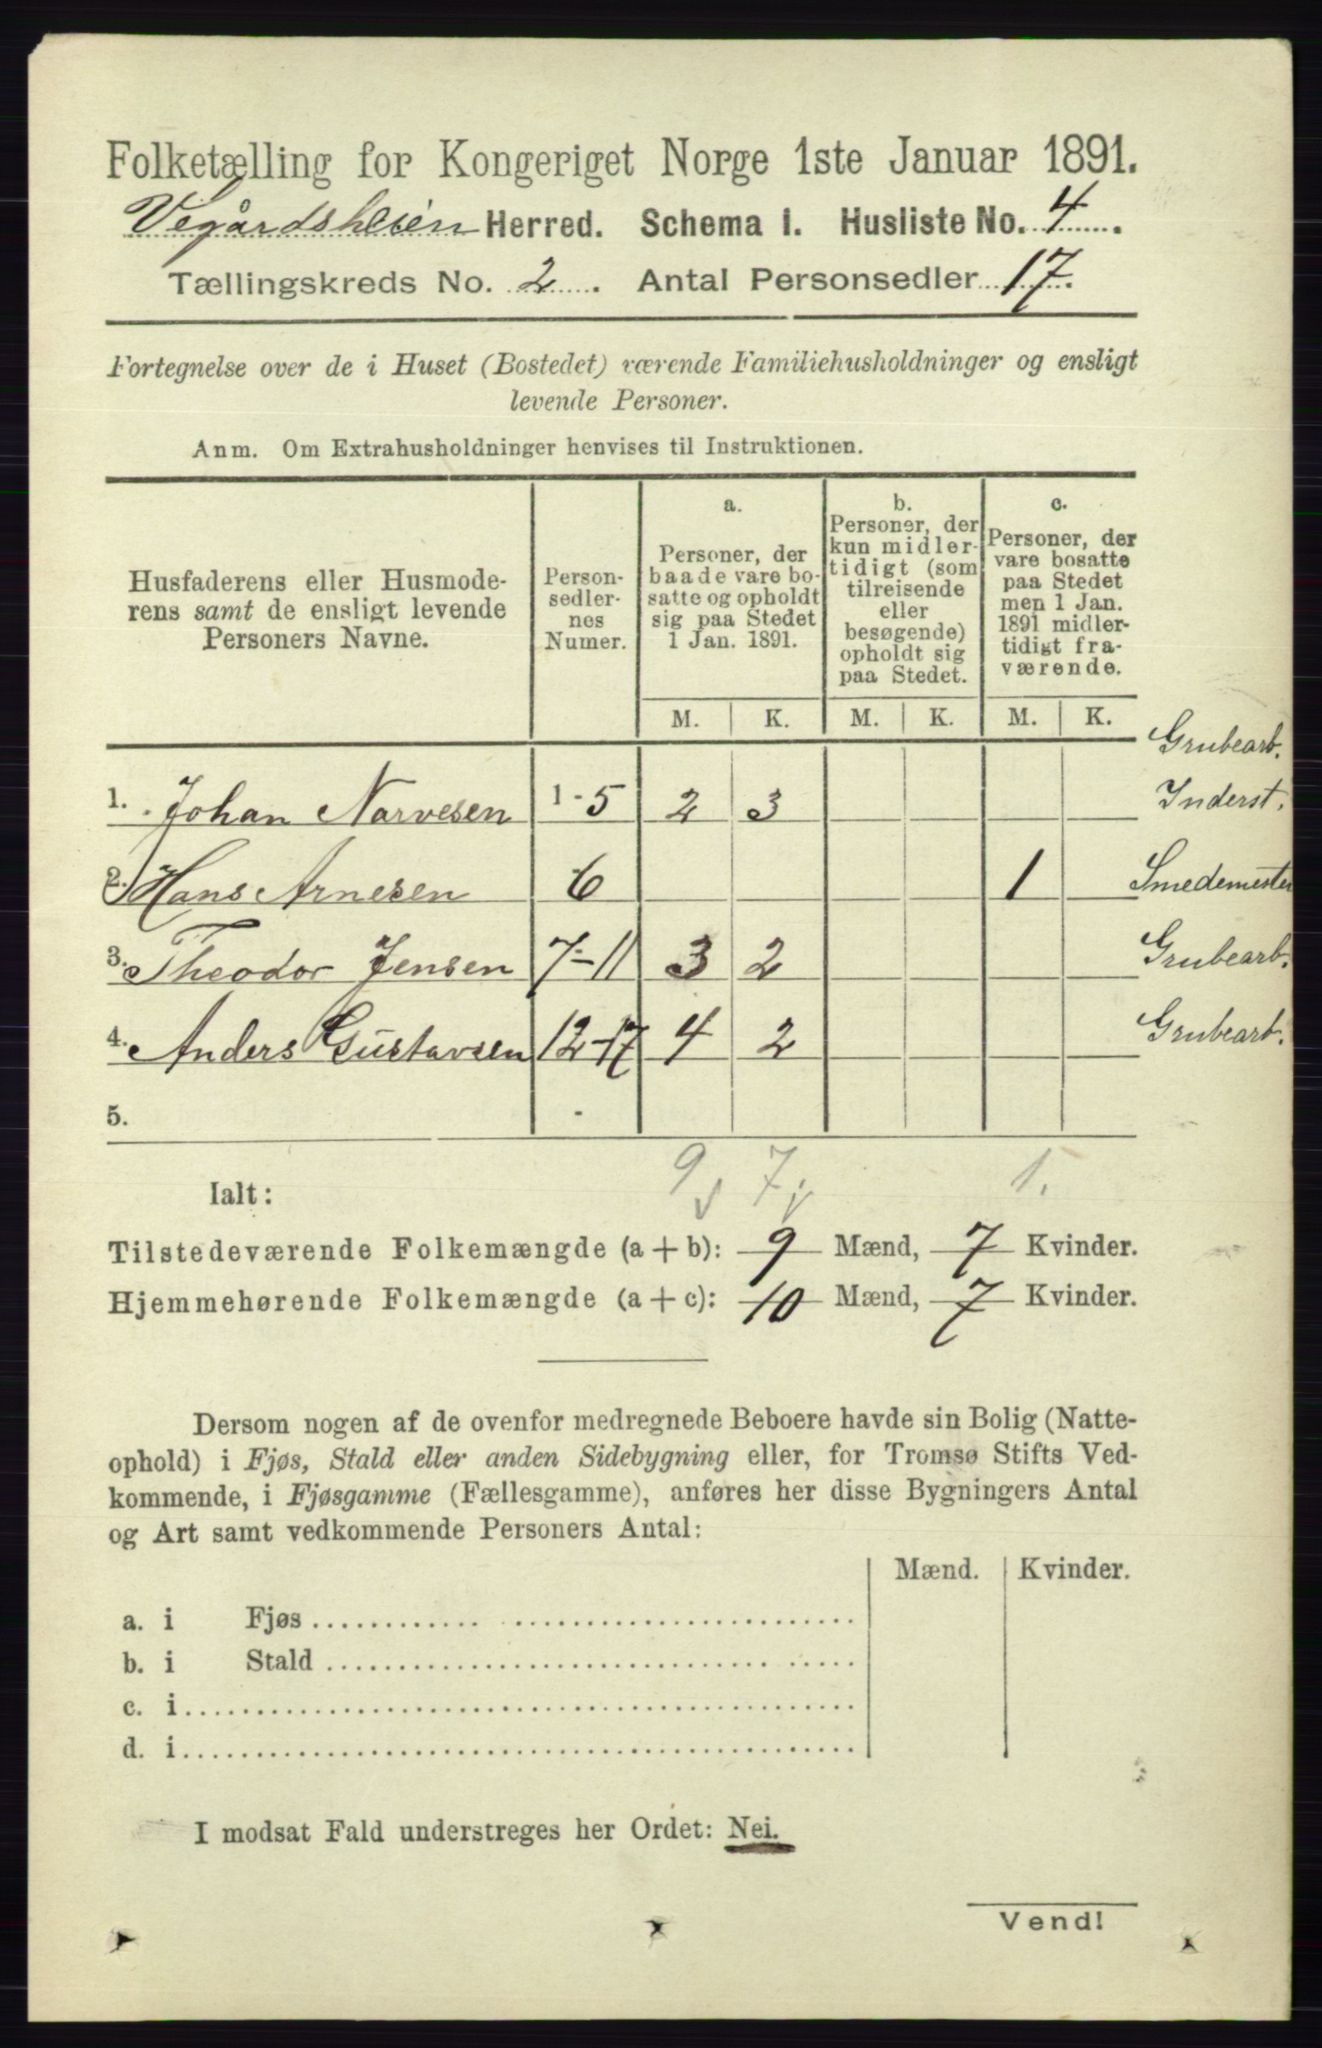 Folketælling for Kongeriget Norge 1ste Januar 1891.
Vegårdsheien Herred. Schema I. Husliste No. 4
Tællingskreds No. 2. Antal Personsedler 17.
Fortegnelse over de i Huset (Bostedet) værende Familiehusholdninger og ensligt
levende Personer.
Anm. Om Extrahusholdninger henvises til Instruktionen.
Husfaderens eller Husmode-
rens samt de ensligt levende
Personers Navne.
Person-
sedler-
nes
Numer.
a.
Personer, der
baade vare bo-
satte og opholdt
sig paa Stedet
1 Jan. 1891.
b.
Personer, der
kun midler-
tidigt (som
tilreisende
eller
besøgende)
opholdt sig
paa Stedet.
c.
Personer, der
vare bosatte
paa Stedet
men 1 Jan.
1891 midler-
tidigt fra-
værende.
M. K. M. K. M. K.
Grubearb.
1. Johan Narvesen 1-5 2 3 Inderst.
2. Hans Arnesen 6 1 Smedemester
3. Theodor Jensen 7-11 3 2 Grubearb.
4. Anders Gustavsen 12-17 4 2 Grubearb.
5. -
Ialt: 9 7 1.
Tilstedeværende Folkemængde (a + b): 9 Mænd, 7 Kvinder.
Hjemmehørende Folkemængde (a + c): 10 Mænd, 7 Kvinder.
Dersom nogen af de ovenfor medregnede Beboere havde sin Bolig (Natte-
ophold) i Fjøs, Stald eller anden Sidebygning eller, for Tromsø Stifts Ved-
kommende, i Fjøsgamme (Fællesgamme), anføres her disse Bygningers Antal
og Art samt vedkommende Personers Antal:
Mænd. Kvinder.
a. i Fjøs
b. i Stald
c. i
d. i
I modsat Fald understreges her Ordet: Nei.
Vend!